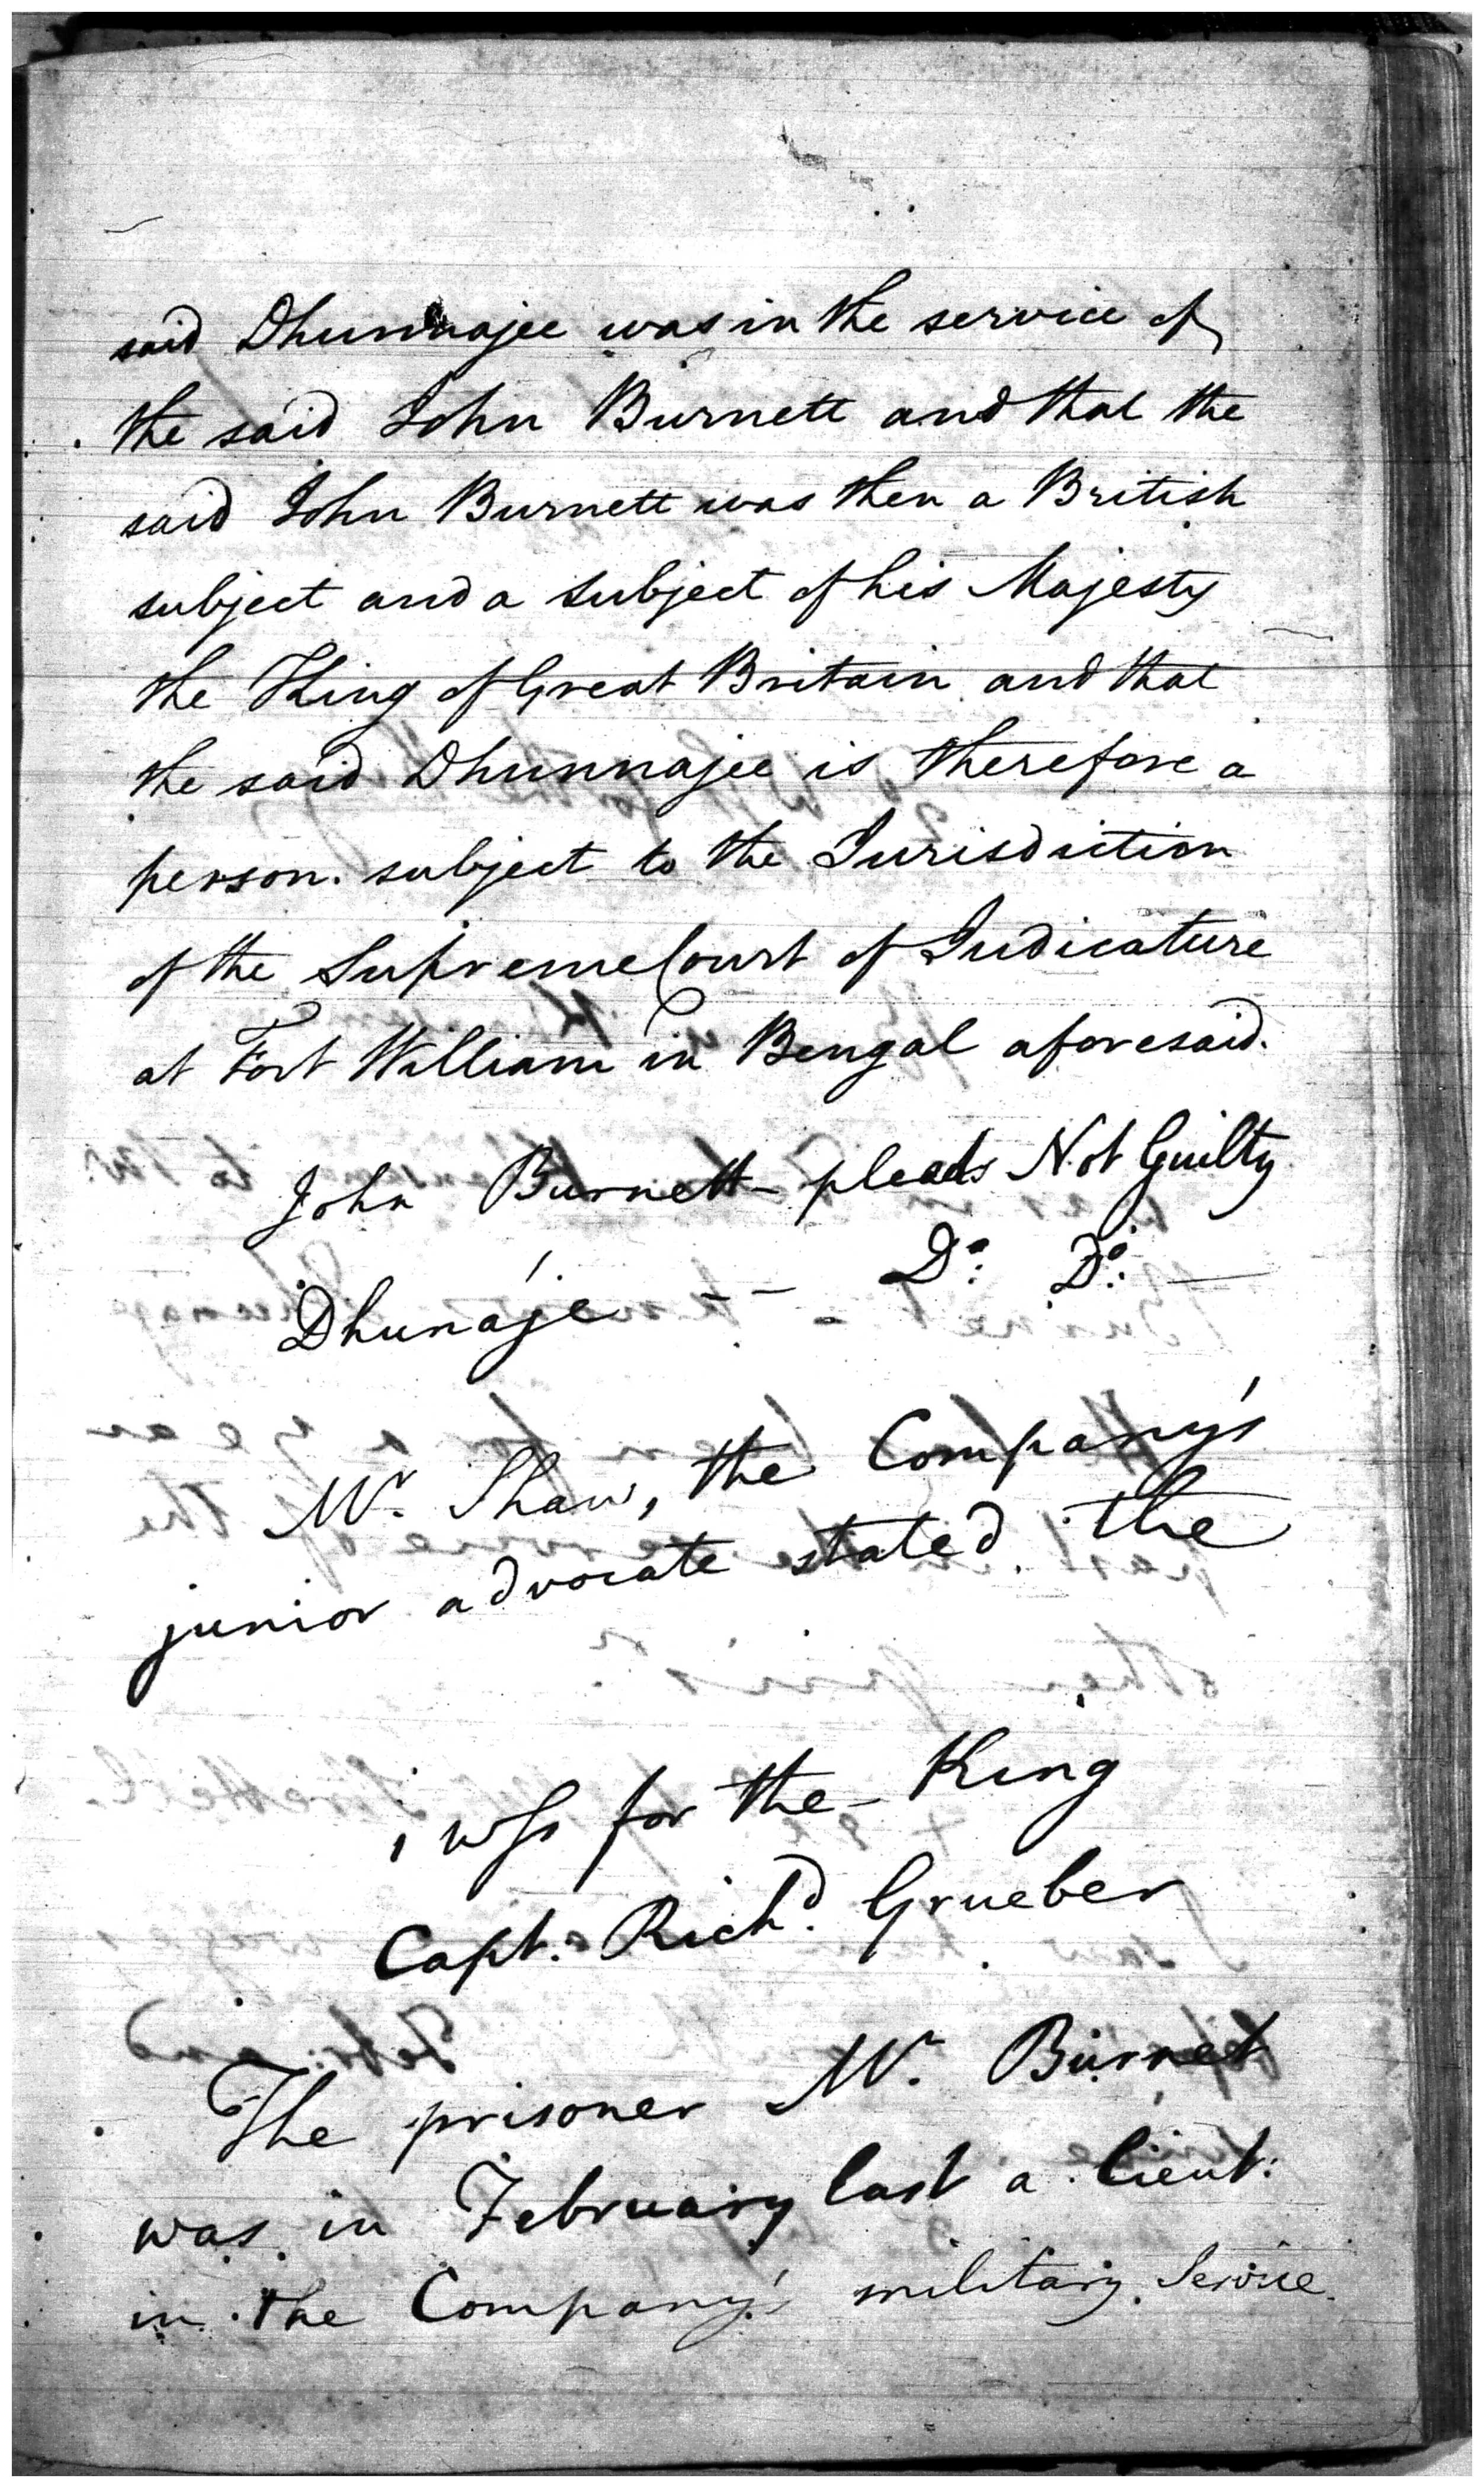 said Dhunnajee was in the service of
the said John Burnett and that the
said John Burnett was then a British
subject and a subject of his Majesty
the King of Great Britain and that
the said Dhunnajee is therefore a
person. subject to the Jurisdiction
of the Supreme Court of Judicature
at Fort William in Bengal aforesaid.
John Burnett pleads Not Guilty
Dhunáje - - Do. Do. —
Mr. Shaw, the Company's
junior advocate stated the
1 wss for the King
Capt. Richd. Grueber
The prisoner Mr. Burnet
was in February last a lieut:
in the Company's military Service.